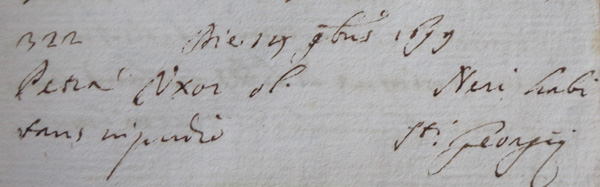 322 Die 14 9bris 1699
Petra Uxor ol. Neri habi
tans in predio Sti. Georgij